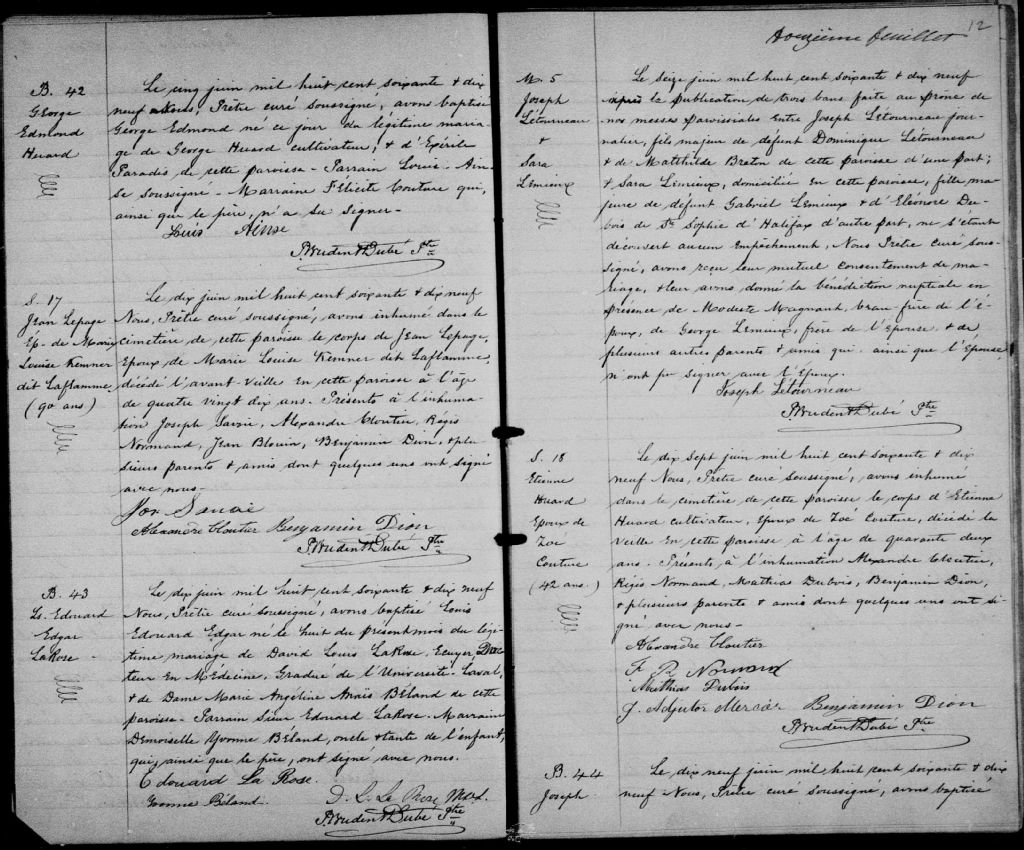 B. 42
George
Edmond
Huard
Le cinq juin mil huit cent soixante & dix
neuf Nous, Prêtre curé soussigné, avons baptisé
George Edmond né ce jour du légitime maria-
ge de George Huard cultivateur, & d'Exérile
Paradis de cette paroisse - Parrain Louis Ain-
se soussigné - Marraine Félicité Couture qui,
ainsi que le père, n'a su signer -
Louis Ainse
P. Prudent Dubé Ptre
S. 17
Jean Lepage
Ep. de Marie
Louise Kemner
dit Laflamme
(90 ans)
Le dix juin mil huit cent soixante & dix neuf
Nous, Prêtre curé soussigné, avons inhumé dans le
cimetière de cette paroisse le corps de Jean Lepage,
Epoux de Marie Louise Kemner dit Laflamme,
décédé l'avant-veille en cette paroisse à l'âge
de quatre vingt dix ans. Présents à l'inhuma-
tion Joseph Savoie, Alexandre Cloutier, Régis
Normand, Jean Blouin, Benjamin Dion, & plu-
sieurs parents & amis dont quelques uns ont signé
avec nous -
Jos Savoie
Alexandre Cloutier Benjamin Dion
P. Prudent Dubé Ptre
B. 43
Ls. Edouard
Edgar
LaRose
Le dix juin mil huit cent soixante & dix neuf
Nous, Prêtre curé soussigné, avons baptisé Louis
Edouard Edgar né le huit du présent mois du légi-
time mariage de David Louis LaRose, Ecuyer, Doc-
teur En Médecine, Gradué de l'Université-Laval,
& de Dame Marie Angéline Anaïs Béland de cette
paroisse - Parrain Sieur Edouard LaRose - Marraine
Demoiselle Yvonne Béland, oncle & tante de l'enfant,
qui, ainsi que le père, ont signé avec nous.
Edouard La Rose.
Yvonne Béland.
D. L. La Rose, M.D.
P. Prudent Dubé Ptre
12
Douzième feuillet
M. 5
Joseph
Létourneau
&
Sara
Lemieux
Le seize juin mil huit cent soixante & dix neuf
après la publication de trois bans faite au prône de
nos messes paroissiales Entre Joseph Létourneau jour-
nalier, fils majeur de défunt Dominique Létourneau
& de Matthilde Breton de cette paroisse d'une part;
& Sara Lemieux, domiciliée en cette paroisse, fille ma-
jeure de défunt Gabriel Lemieux & d'Eléonore Du-
bois de Ste Sophie d'Halifax d'autre part, ne s'étant
découvert aucun Empêchement, Nous Prêtre curé sous-
signé, avons reçu leur mutuel consentement de ma-
riage, & leur avons donné la bénédiction nuptiale en
présence de Modeste Magnant, beau-frère de l'é-
poux, de George Lemieux, frère de l'Epouse, & de
plusieurs autres parents & amis qui ainsi que l'Epouse
n'ont pu signer avec l'Epoux.
Joseph Letourneau
P. Prudent Dubé Ptre
S. 18
Etienne
Huard
Epoux de
Zoé
Couture
(42 ans.)
Le dix sept juin mil huit cent soixante & dix
neuf Nous, Prêtre curé soussigné, avons inhumé
dans le cimetière de cette paroisse le corps d'Etienne
Huard cultivateur, Epoux de Zoé Couture, décédé la
veille en cette paroisse à l'âge de quarante deux
ans. Présents à l'inhumation Alexandre Cloutier,
Régis Normand, Mathias Dubois, Benjamin Dion,
& plusieurs parents & amis dont quelques uns ont si-
gné avec nous -
Alexandre Cloutier
F. R. Normand
Mathias Dubois
J. Adjutor Mercier Benjamin Dion
P. Prudent Dubé Ptre
B. 44
Joseph
Le dix neuf juin mil huit cent soixante & dix
neuf Nous, Prêtre curé soussigné, avons baptisé